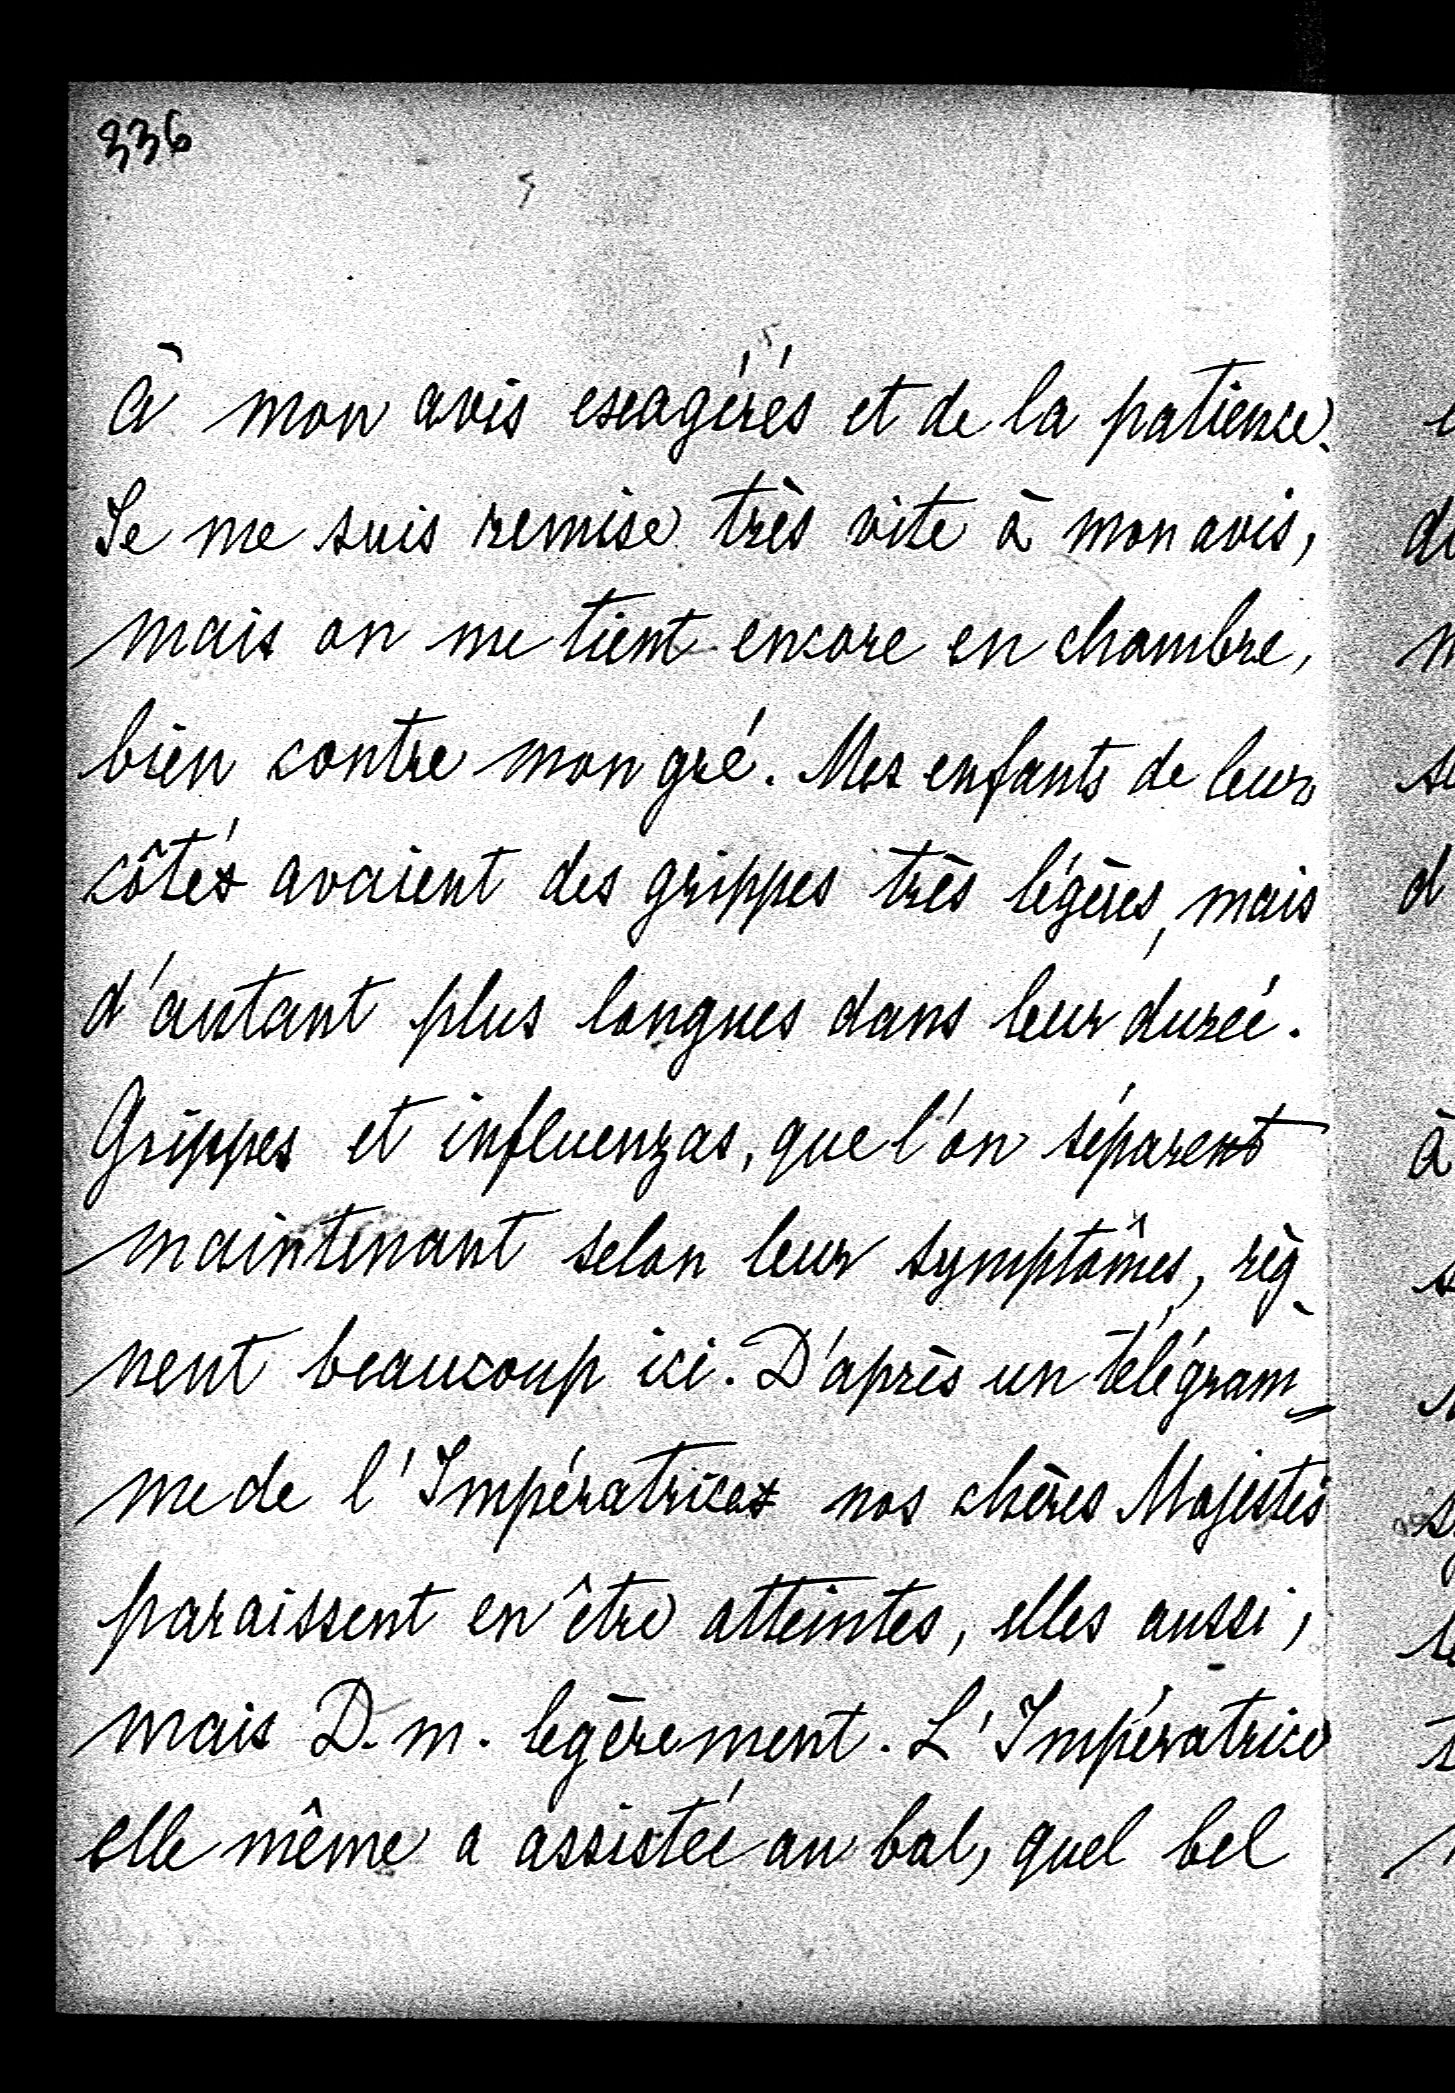 336
à mon avis exagérés et de la patience.
Je me suis remise très vite à mon avis,
mais on me tient encore en chambre,
bien contre mon gré. Mes enfants de leur
côtés avaient des grippes très légères, mais
d'autant plus longues dans leur durée.
Grippes et influenzas, que l'on séparent
maintenant selon leur symptômes, règ
nent beaucoup ici. D'après un télégram=
me de l'Impératrice nos chères Majestés
paraissent en être atteintes, elles aussi,
mais D. m. légèrement. L'Impératrice
elle même a assistée au bal, quel bel